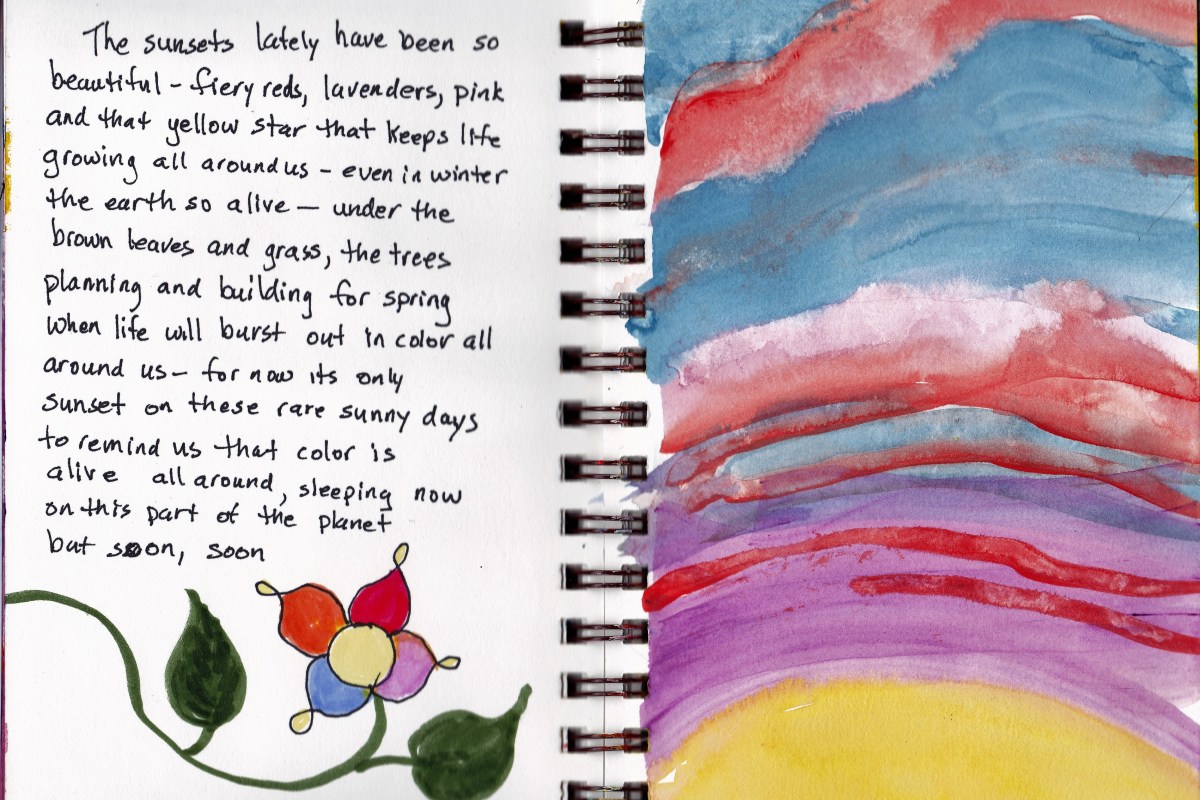 The sunsets lately have been so
beautiful - fiery reds, lavenders, pink
and that yellow star that keeps life
growing all around us - even in winter
the earth so alive — under the
brown leaves and grass, the trees
planning and building for spring
when life will burst out in color all
around us - for now its only
sunset on these rare sunny days
to remind us that color is
alive all around, sleeping now
on this part of the planet
but soon, soon